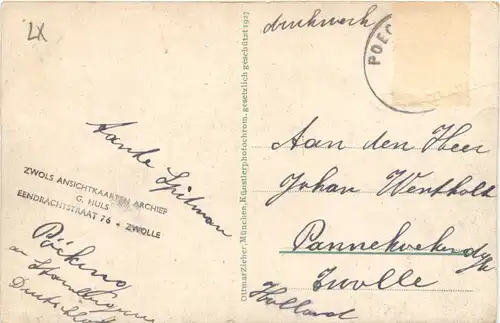 LX
Tante Spitman
ZWOLS ANSICHTKAARTEN ARCHIEF
G. HULS
EENDRACHTSTRAAT 76 - ZWOLLE
Pöcking
a. Starnbergersee
Deutschland
Ottmar Zieher, München, Künstlerphotochrom. gesetzlich geschützt 1927
drukwerk
POEC
Aan den Heer
Johan Wentholt
Pannekoekendijk
Zwolle
Holland